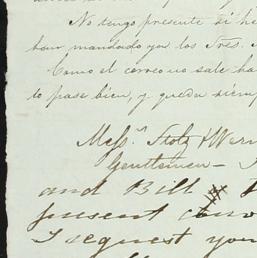 No tengo presente si he
han mandado ya los Sres.
Como el correo no sale ha
lo pase bien, y queda siemp
Mess.rs Stolz & Wern
Gentlemen –
and Bill
present
I request you